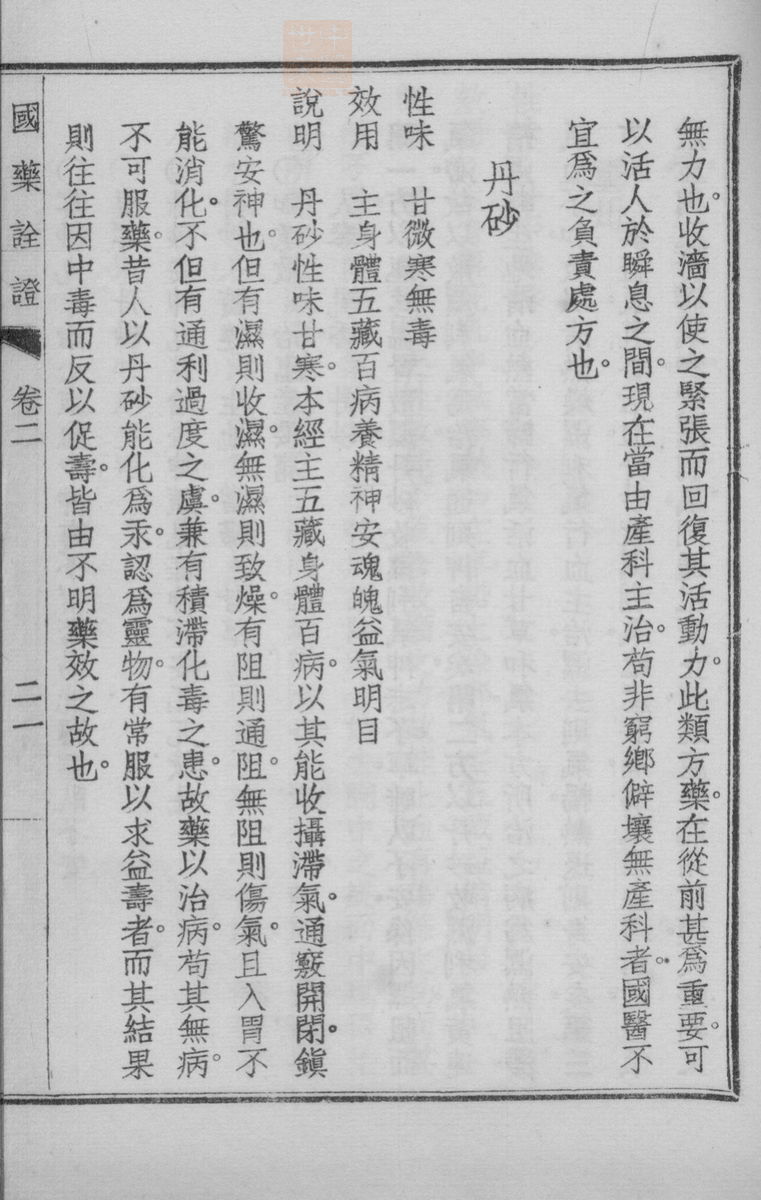 無力也。收濇以使之緊張而回復其活動力。此類方藥。在從前甚爲重要。可
以活人於瞬息之間。現在當由產科主治。苟非窮鄉僻壤無產科者。國醫不
宜爲之負責處方也。
丹砂
性味　甘微寒無毒
效用　主身體五藏百病養精神安魂魄益氣明目
說明　丹砂性味甘寒。本經主五藏身體百病。以其能收攝滯氣。通竅開閉。鎭
驚安神也。但有濕則收濕。無濕則致燥。有阻則通阻。無阻則傷氣。且入胃不
能消化。不但有通利過度之虞。兼有積滯化毒之患。故藥以治病。苟其無病。
不可服藥。昔人以丹砂能化爲汞。認爲靈物。有常服以求益壽者。而其結果
則往往因中毒而反以促壽。皆由不明藥效之故也。
國藥詮證
卷二
二一